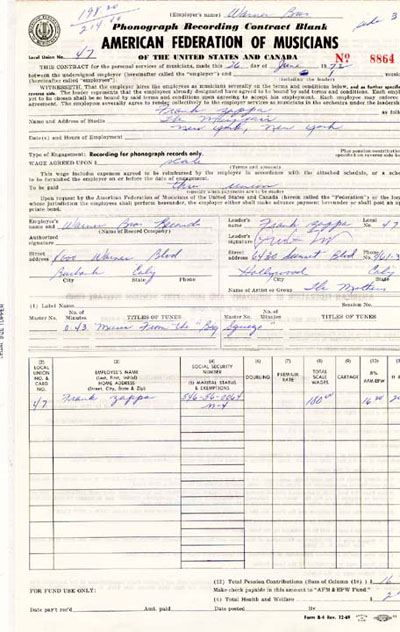 198.20
214.40
(Employer's name) Warner Bros
Phonograph Recording Contract Blank
AMERICAN FEDERATION OF MUSICIANS
OF THE UNITED STATES AND CANADA
Local Union No. 47
No 8864
THIS CONTRACT for the personal services of musicians, made this day of June 1972
between the undersigned employer (hereinafter called the "employer") and
(hereinafter called "employees").
(including the leader)
WITNESSETH, That the employer hires the employees as musicians severally on the terms and conditions below, and as further specified
reverse side. The leader represents that the employees already designated have agreed to be bound by said terms and conditions. Each employee
yet to be chosen shall be so bound by said terms and conditions upon agreeing to accept his employment. Each employee may enforce
agreement. The employees severally agree to render collectively to the employer services as musicians in the orchestra under the leadership
Frank Zappa
Name and Address of Studio The
New York, New York
Date(s) and Hours of Employment
Type of Engagement: Recording for phonograph records only.
Plus pension contributions
specified on reverse side
WAGE AGREED UPON $ scale
(Terms and amount)
This wage includes expenses agreed to be reimbursed by the employer in accordance with the attached schedule, or a schedule
to be furnished the employer on or before the date of engagement.
To be paid
(Specify when payments are to be made)
Upon request by the American Federation of Musicians of the United States and Canada (herein called the "Federation") or the local
whose jurisdiction the employees shall perform hereunder, the employer either shall make advance payment hereunder or shall post an
priate bond.
Employer's name and Warner Bros Records
Leader's name Frank Zappa Local No. 47
Authorized signature
(Name of Record Company)
Leader's signature
Street address Warner Blvd
Street address Sunset Blvd Phone
Burbank Calif
Hollywood Calif
City State Phone
City State
Name of Artist or Group The Mothers
(1) Label Name
Session No.
Master No. No. of Minutes TITLES OF TUNES
Master No. No. of Minutes TITLES OF TUNES
0.43 Music From the "Big Squeeze"
(2) LOCAL UNION NO. & CARD NO.
(3) EMPLOYEE'S NAME (Last, First, Initial) HOME ADDRESS (Street, City, State & Zip)
(4) SOCIAL SECURITY NUMBER
(5) MARITAL STATUS & EXEMPTIONS
(6) DOUBLING
(7) PREMIUM RATE
(8) TOTAL SCALE WAGES
(9) CARTAGE
(10) 8% AFM-EPW
47 Frank Zappa
(12) Total Pension Contributions (Sum of Column (10)) $ 16
Make check payable in this amount to "AFM & EPW Fund."
FOR FUND USE ONLY:
Total Health and Welfare $
Date pay't rec'd Amt. paid Date posted By
Form B-4 Rev. 12-69